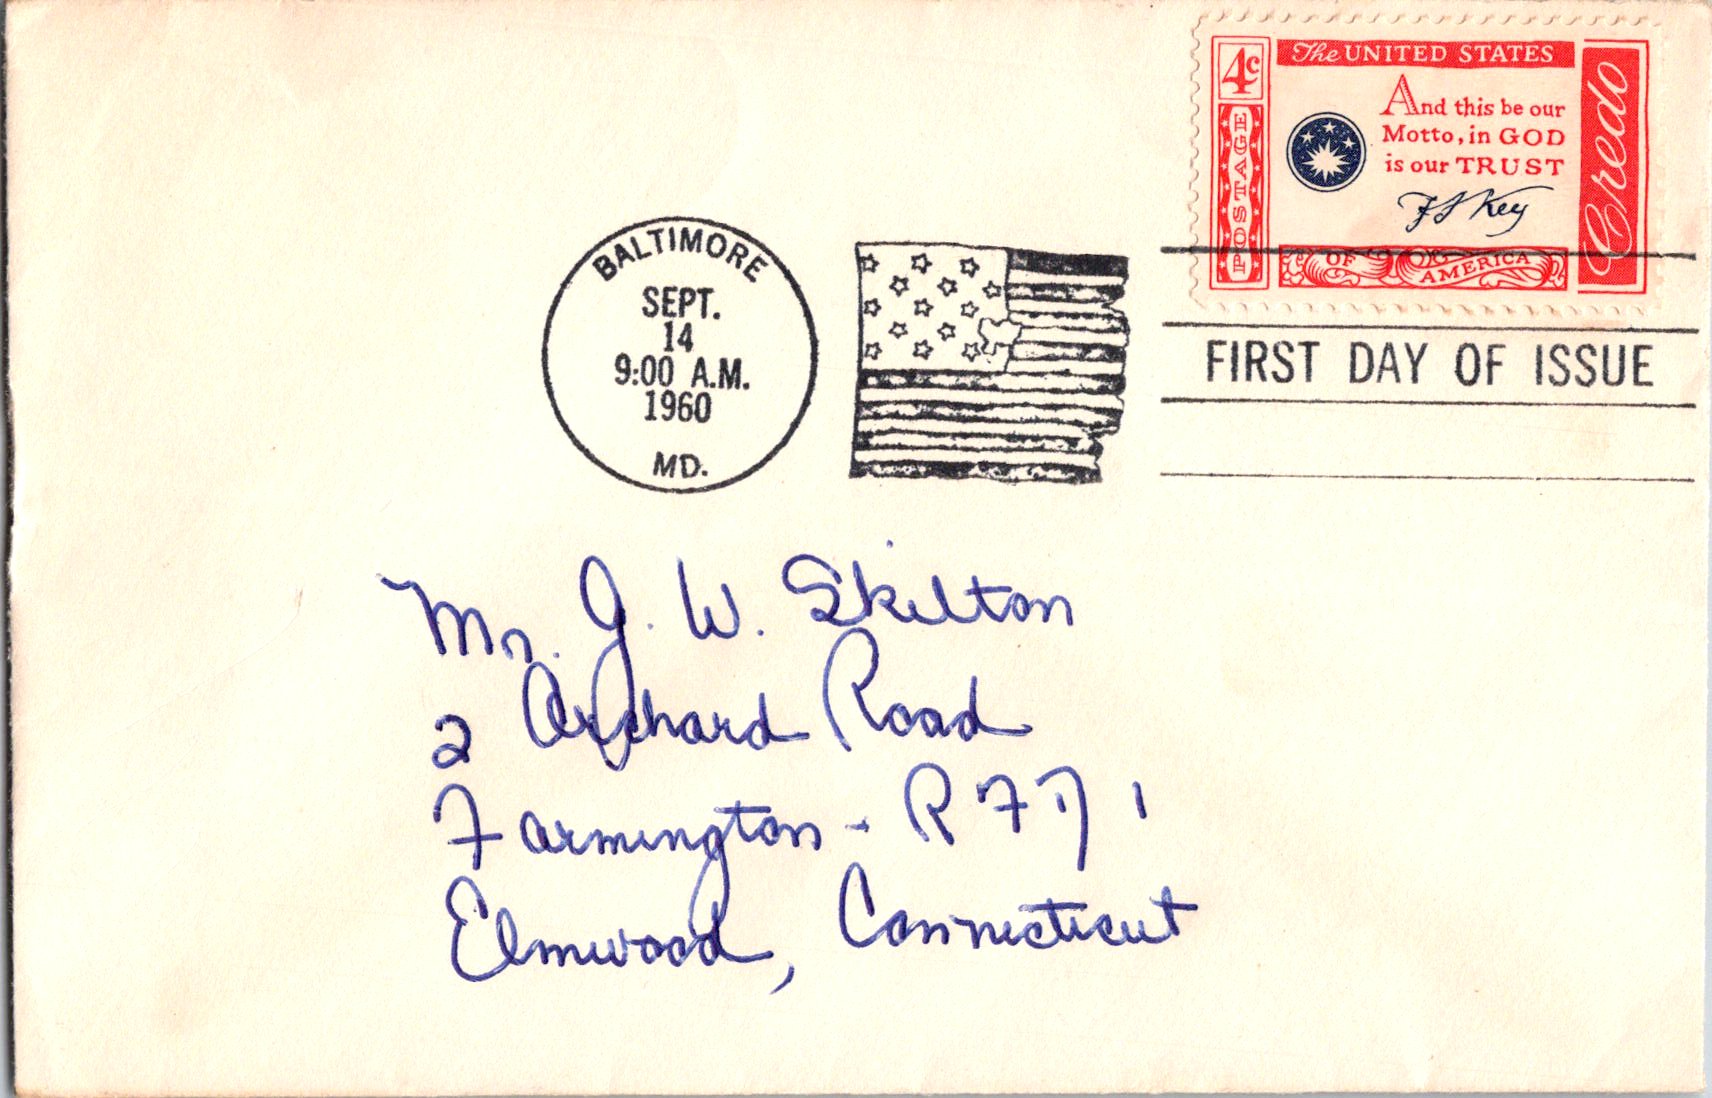 4c
POSTAGE
The UNITED STATES
And this be our
Motto, in GOD
is our TRUST
F S Key
OF AMERICA
Credo
BALTIMORE
SEPT.
14
9:00 A.M.
1960
MD.
FIRST DAY OF ISSUE
Mr. J. W. Skelton
2 Orchard Road
Farmington - R F D 1
Elmwood, Connecticut